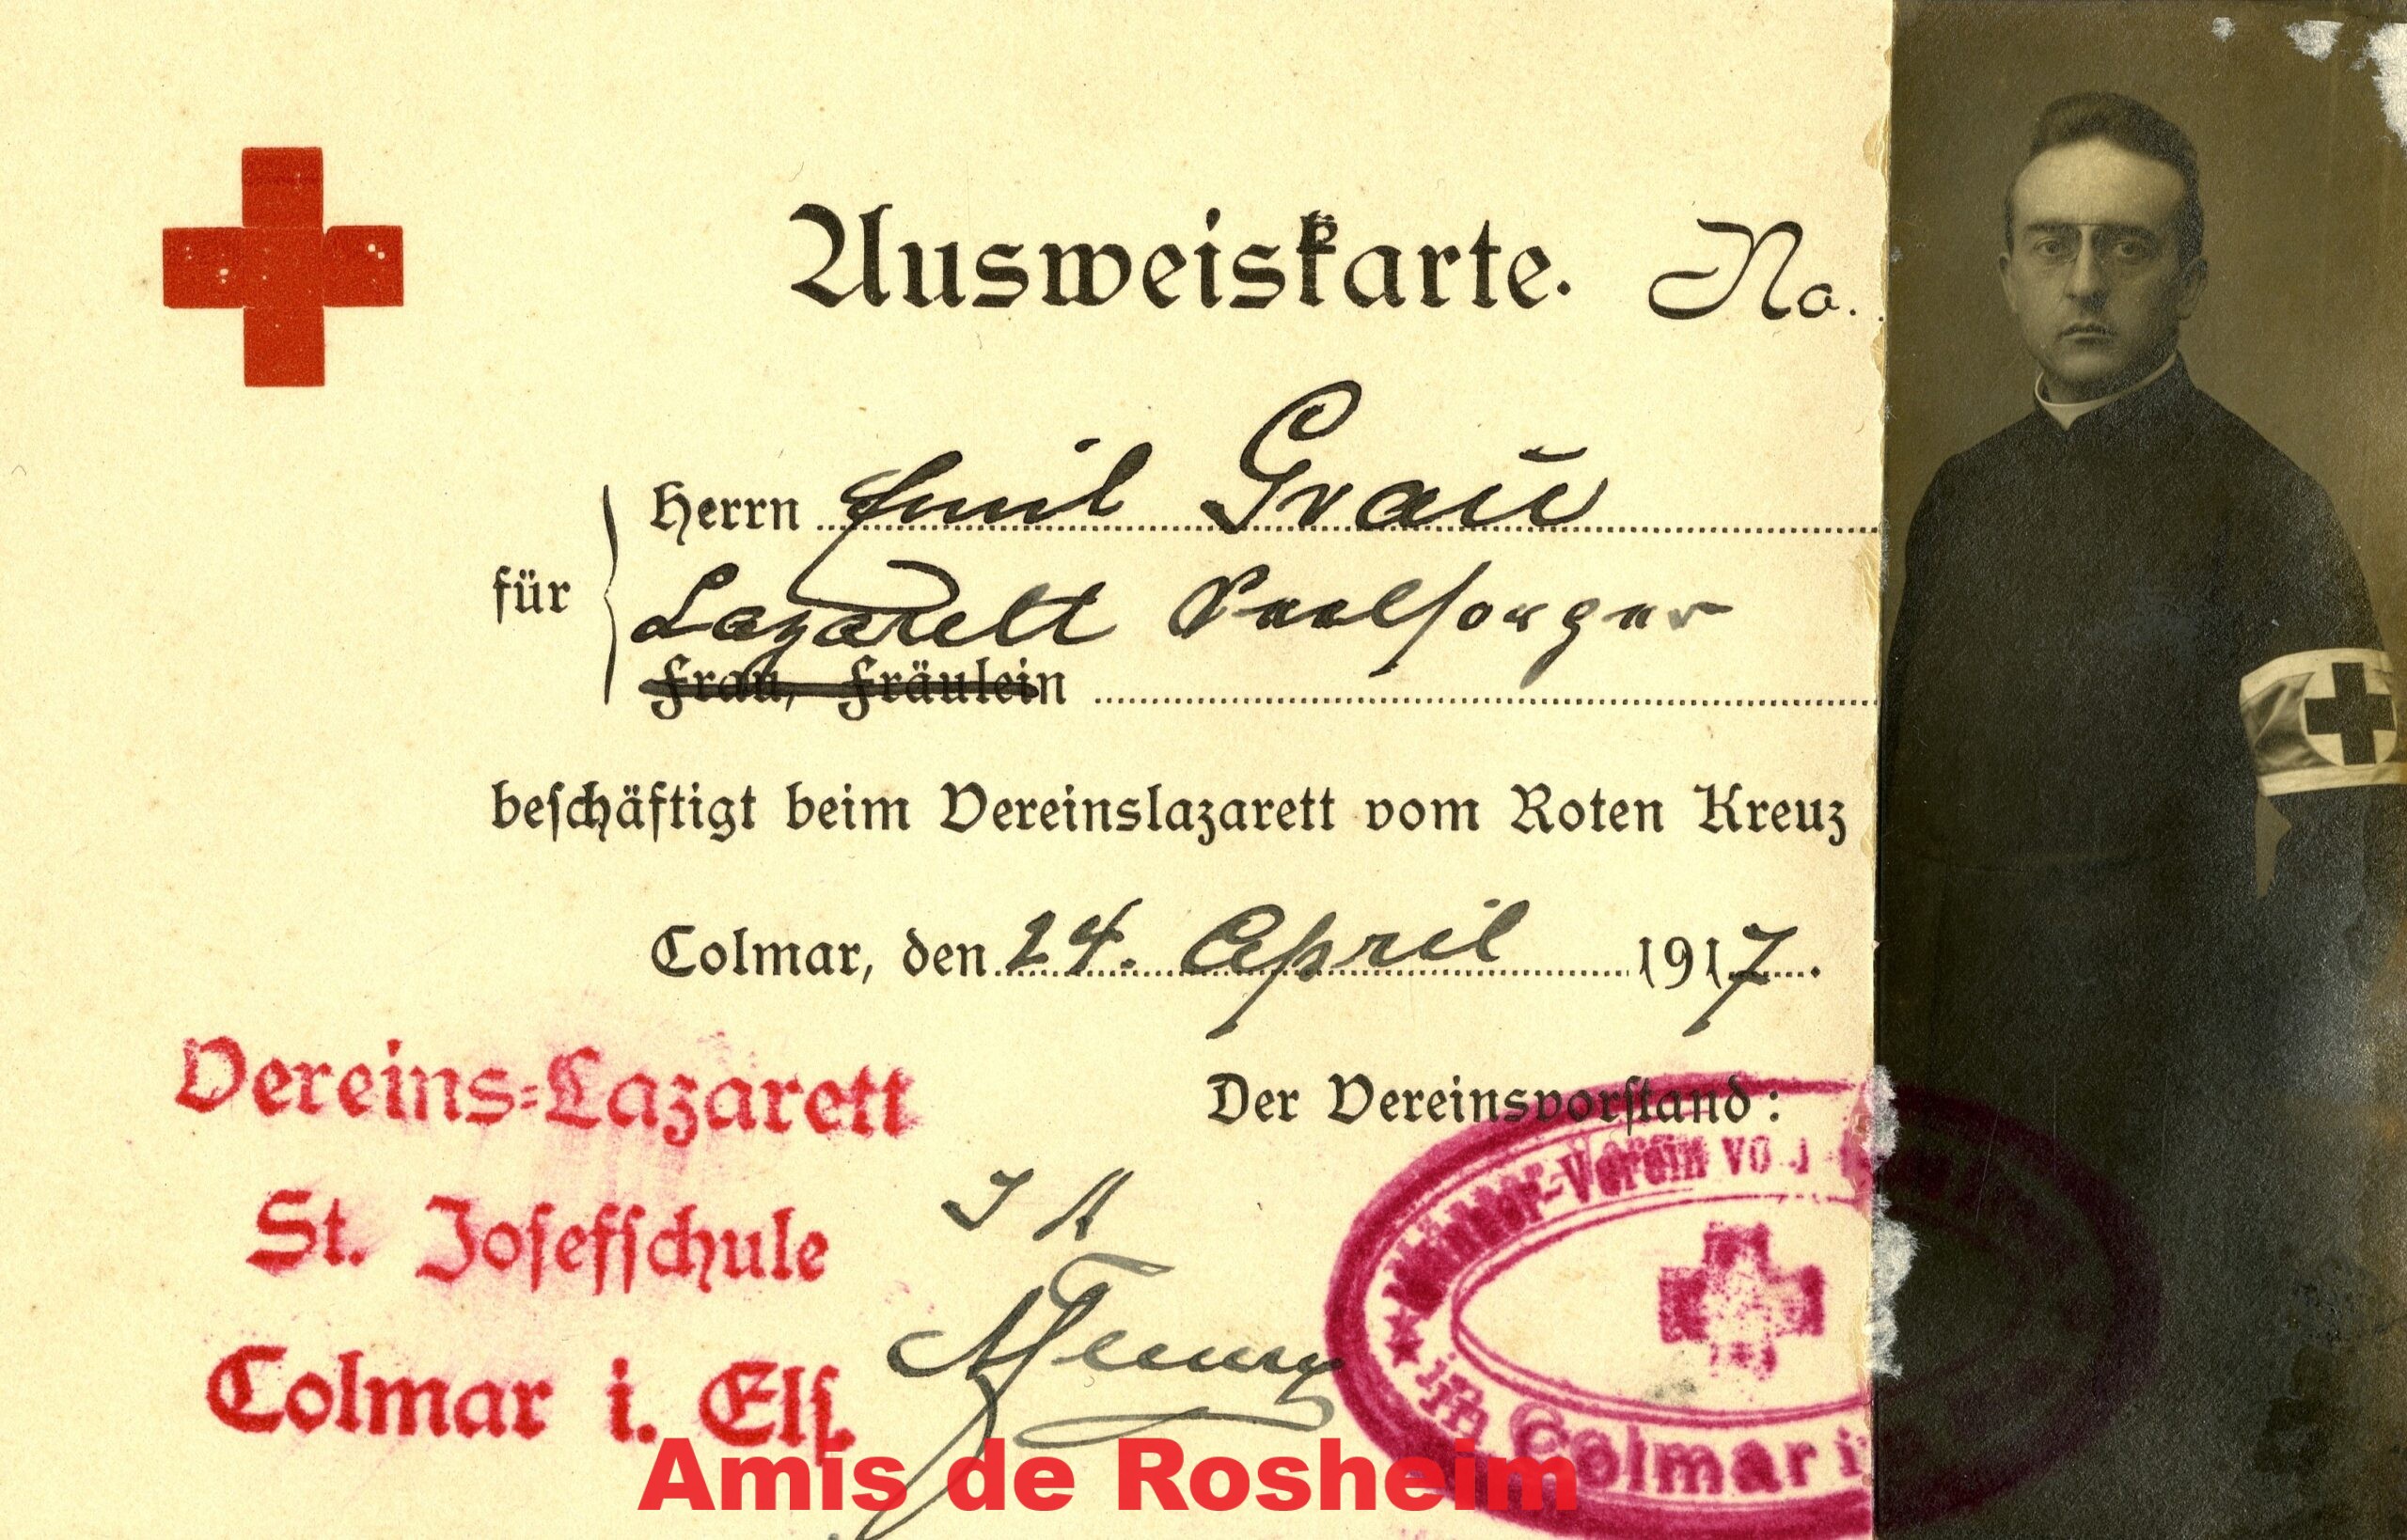 Ausweiskarte. No.
Herrn Emil Grau
für
Lazarett Seelsorger
Frau, Fräulein
beschäftigt beim Vereinslazarett vom Roten Kreuz
Colmar, den 24. April 1917.
Vereins=Lazarett
St. Josefschule
Colmar i. Els.
Der Vereinsvorstand:
I A
Männer-Verein vo
in Colmar i
Amis de Rosheim